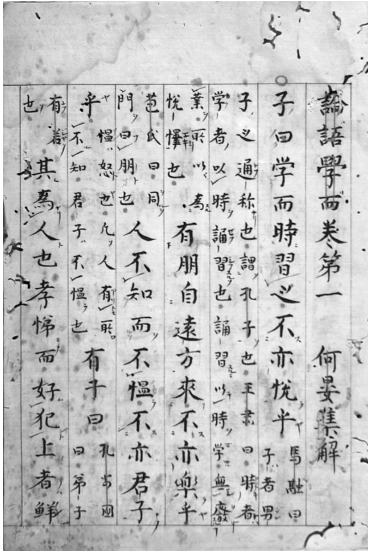 論語學而巻第一　何晏集解
子曰学而時習之不亦悦乎
馬融曰
子者男
子之通称也謂孔子也王肅曰時者
学者以時誦習也誦習以時学無廢
業所以為
悦懌也
有朋自遠方來不亦樂乎
苞氏曰同
門曰朋也
人不知而不慍不亦君子
乎
慍怒也凡人有所
不知君子不慍也
有子曰
孔安國
曰弟子
有若
也
其為人也孝悌而好犯上者鮮